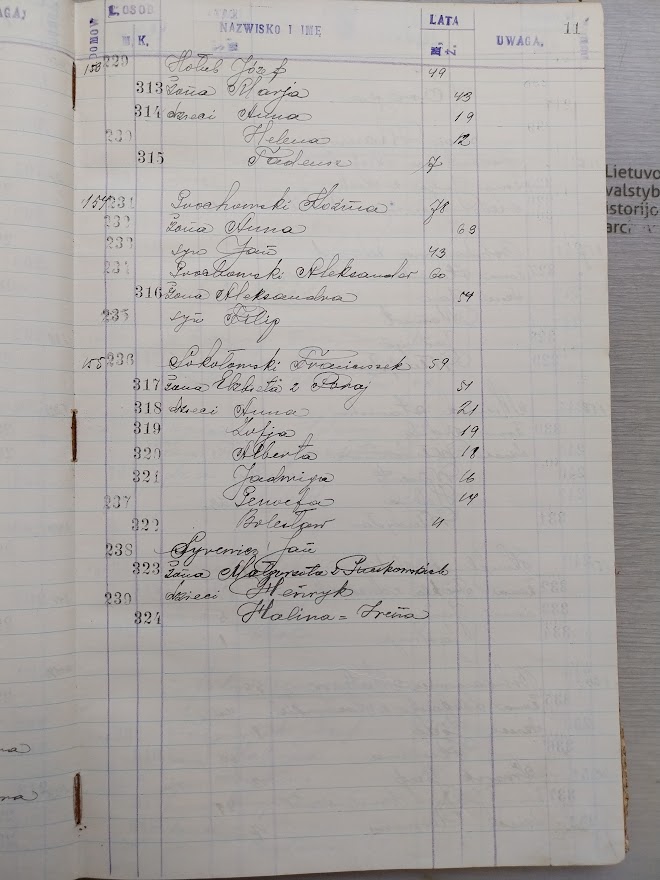 WAGA;
DOMÓW L. OSOB NAZWISKO I IMĘ LATA UWAGA. 11
M. K. M. Ż.
153 229 Hołub Józef 49
313 żona Marja 43
314 dzieci Anna 19
230 Helena 12
315 Tadeusz 7
154 231 Grochowski Kozma 78
232 żona Anna 63
233 syn Jan 43
234 Grochowski Aleksander 60
316 żona Aleksandra 54
235 syn Filip
155 236 Sokołowski Franciszek 59
317 żona Elżbieta z Poraj 51
318 dzieci Anna 21
319 Zofja 19
320 Alberta 18
321 Jadwiga 16
237 Genoefa 14
322 Bolesław 4
238 Syrewicz Jan
323 żona Małgorzata z
239 dzieci Henryk
324 Halina = Irena
Lietuvo
valstyb
istorijo
arc